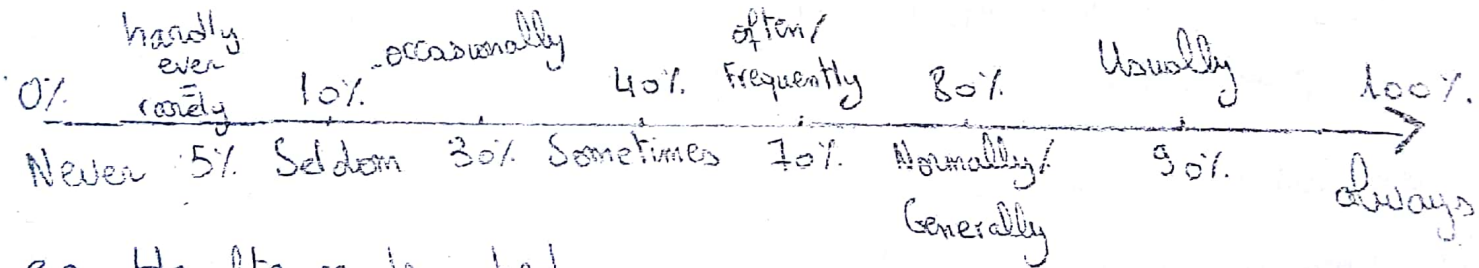 0% hardly ever = rarely 10% occasionally 40% often/ Frequently 80% Usually 100%
Never 5% Seldom 30% Sometimes 70% Normally/ Generally 90% always